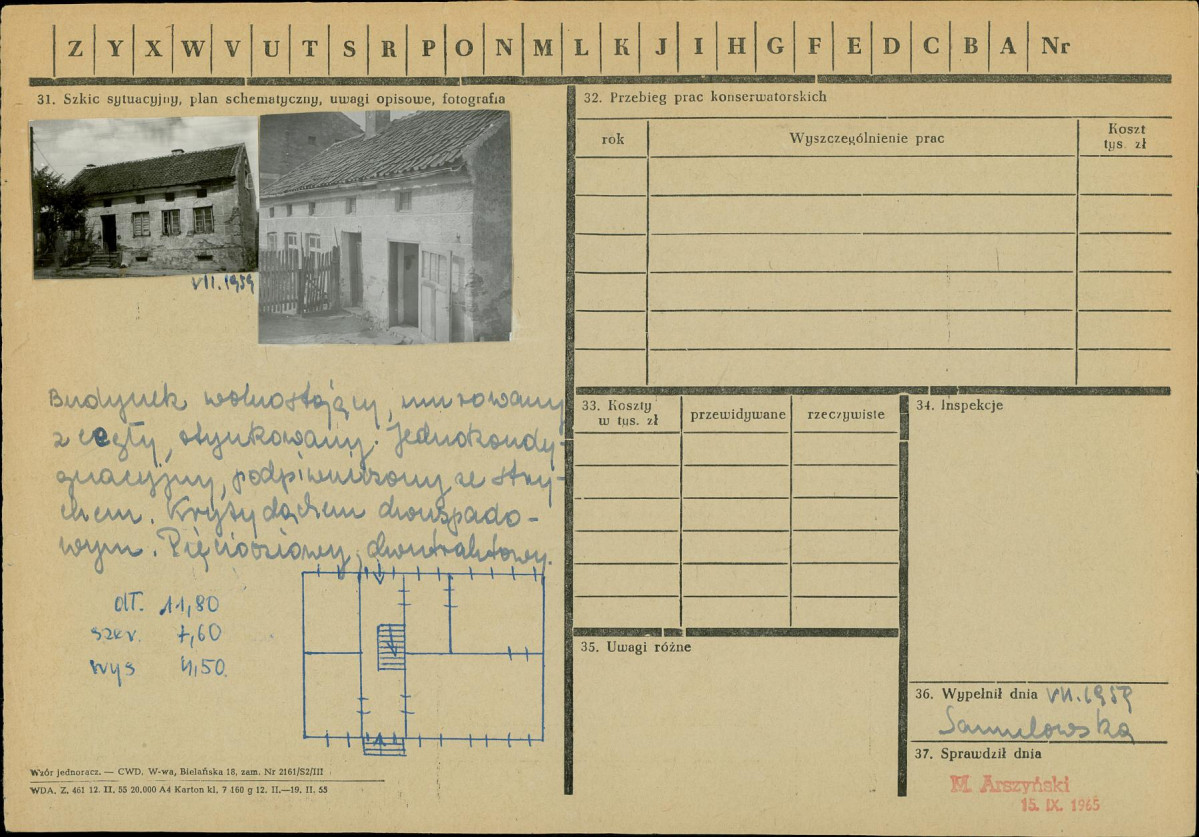 Z Y X W V U T S R P O N M L K J I H G F E D C B A Nr
31. Szkic sytuacyjny, plan schematyczny, uwagi opisowe, fotografia
VII.1959
Budynek wolnostojący, murowany
z cegły, otynkowany. Jednokondy-
gnacyjny, podpiwniczony ze stry-
chem. Kryty dachem dwuspado-
wym. Pięcioosiowy, dwutraktowy.
dł. 11,80
szer. 7,60
wys 4,50.
Wzór jednoracz. — CWD, W-wa, Bielańska 18, zam. Nr 2161/S2/III
WDA. Z. 461 12. II. 55 20.000 A4 Karton kl. 7 160 g 12. II.—19. II. 55
32. Przebieg prac konserwatorskich
rok
Wyszczególnienie prac
Koszt
tys. zł
33. Koszty
w tys. zł
przewidywane
rzeczywiste
34. Inspekcje
35. Uwagi różne
36. Wypełnił dnia VII.1959
Samulowska
37. Sprawdził dnia
M. Arszyński
15. IX. 1965